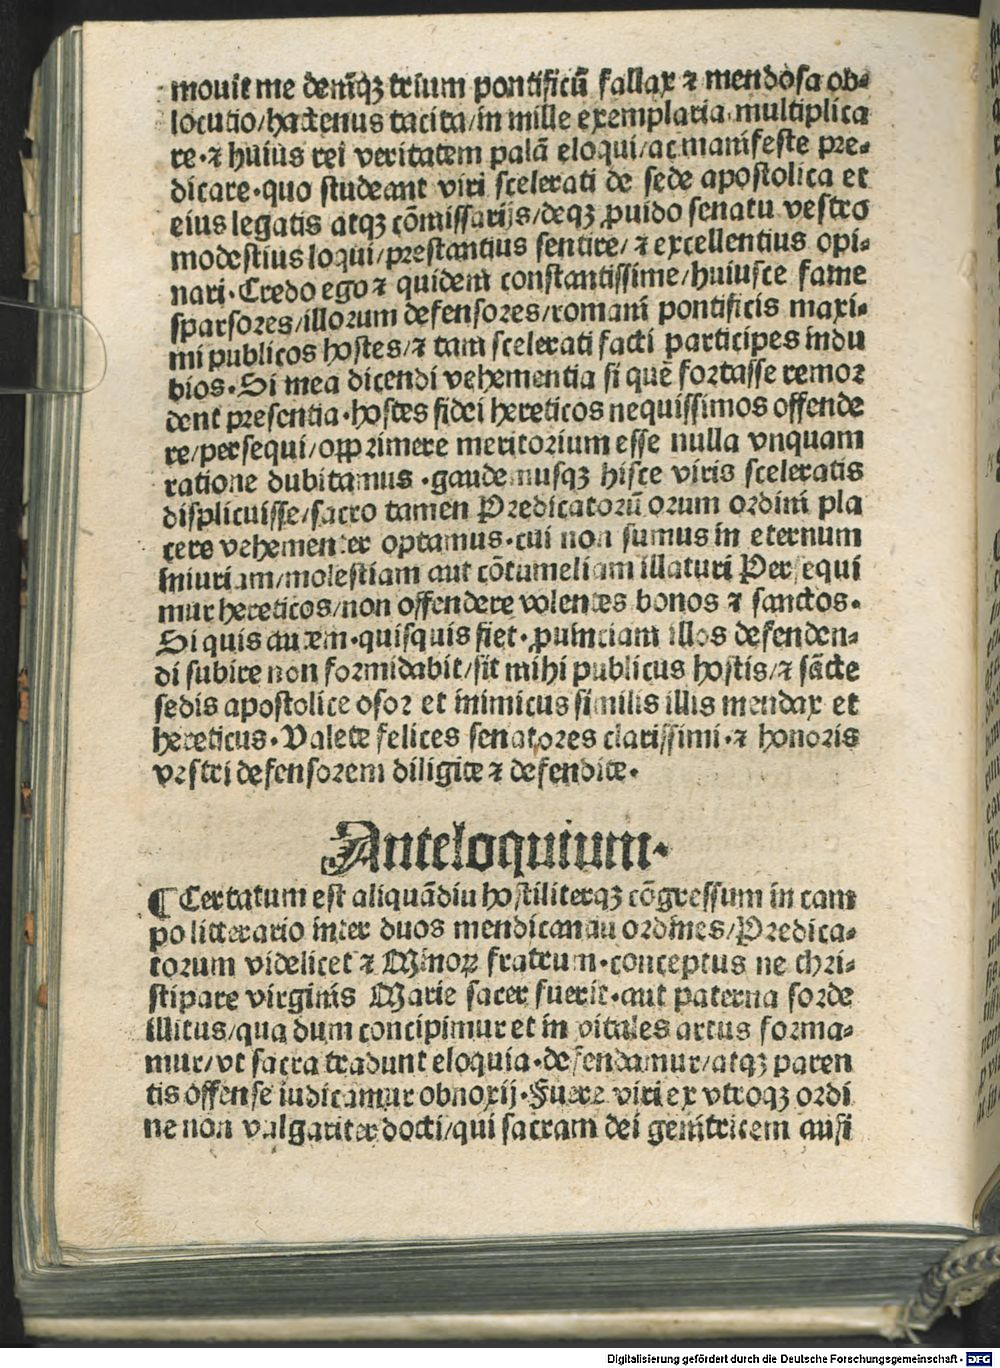 mouit me deniqꝫ trium pontificū fallax ⁊ mendosa ob-
locutio/hactenus tacita/in mille exemplaria multiplica
re·⁊ huius rei veritatem palā eloqui/ac manifeste pre-
dicare·quo studeant viri scelerati de sede apostolica et
eius legatis atqꝫ cōmissarijs/deqꝫ ꝓuido senatu vestro
modestius loqui/prestantius sentire/⁊ excellentius opi-
nari·Credo ego ⁊ quidem constantissime/huiusce fame
sparsores/illorum defensores/romani pontificis maxi-
mi publicos hostes/⁊ tam scelerati facti participes indu
bios·Si mea dicendi vehementia si quē fortasse remor
dent presentia·hostes fidei hereticos nequissimos offende
re/persequi/opprimere meritorium esse nulla vnquam
ratione dubitamus·gaudemusqꝫ hisce viris sceleratis
displicuisse/sacro tamen Predicatorū orum ordini pla
cere vehementer optamus·cui non sumus in eternum
iniuriam/molestiam aut cōtumeliam illaturi Persequi
mur hereticos/non offendere volentes bonos ⁊ sanctos·
Si quis autem·quisquis fiet·ꝓuinciam illos defenden-
di subire non formidabit/sit mihi publicus hostis/⁊ sācte
sedis apostolice osor et inimicus similis illis mendax et
hereticus·Valete felices senatores clarissimi·⁊ honoris
vestri defensorem diligite ⁊ defendite·
Anteloquium·
¶ Certatum est aliquādiu hostiliterqꝫ cōgressum in cam
po litterario inter duos mendicantiū ordines/Predica-
torum videlicet ⁊ Minoꝝ fratrum·conceptus ne chri-
stipare virginis Marie sacer fuerit·aut paterna sorde
illitus/qua dum concipimur et in vitales artus forma-
mur/vt sacra tradunt eloquia·defendamur/atqꝫ paren
tis offense iudicamur obnoxij·Fuere viri ex vtroqꝫ ordi
ne non vulgariter docti/qui sacram dei genitricem ausi
Digitalisierung gefördert durch die Deutsche Forschungsgemeinschaft - DFG